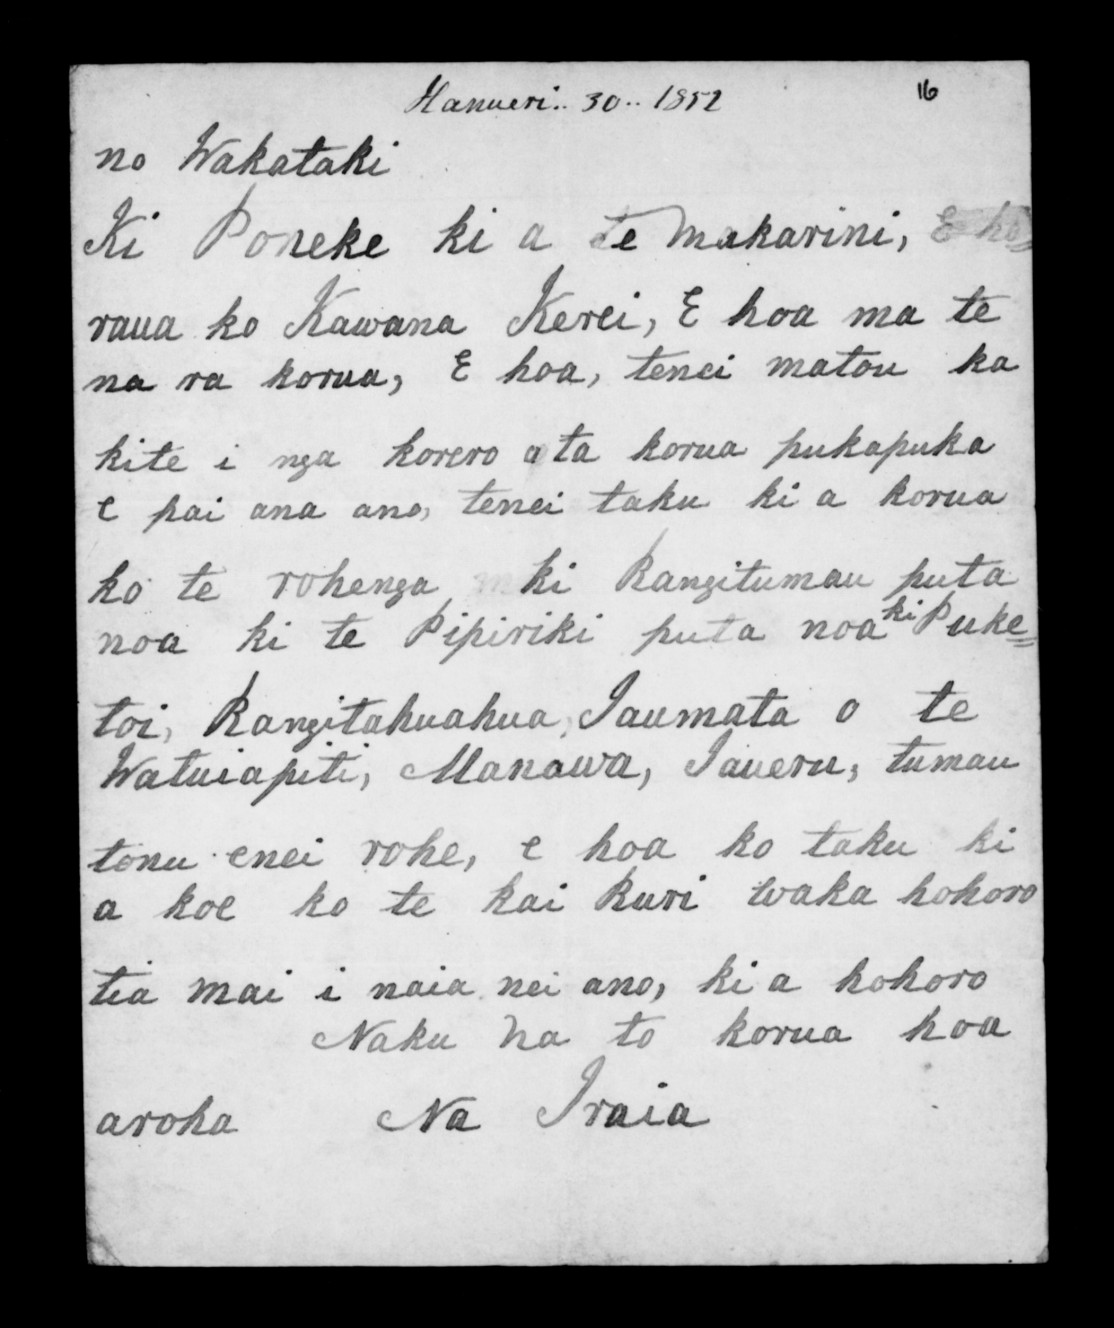 Hanueri.. 30.. 1852
16
no Wakataki
Ki Poneke ki a te Makarini, E ho=
raua ko Kawana Kerei, E hoa ma te
na ra korua, E hoa, tenei matou ka
kite i nga korero a ta korua pukapuka
e pai ana ano, tenei taku ki a korua
ko te rohenga ki Rangitumau puta
noa ki te Pipiriki puta noa ki Puke=
toi, Rangitahuahua, Taumata o te
Watuiapiti, Manawa, Taueru, tumau
tonu enei rohe, e hoa ko taku ki
a koe ko te kai Ruri waka hohoro
tia mai i naia nei ano, ki a hohoro
Naku Na to korua hoa
aroha Na Iraia